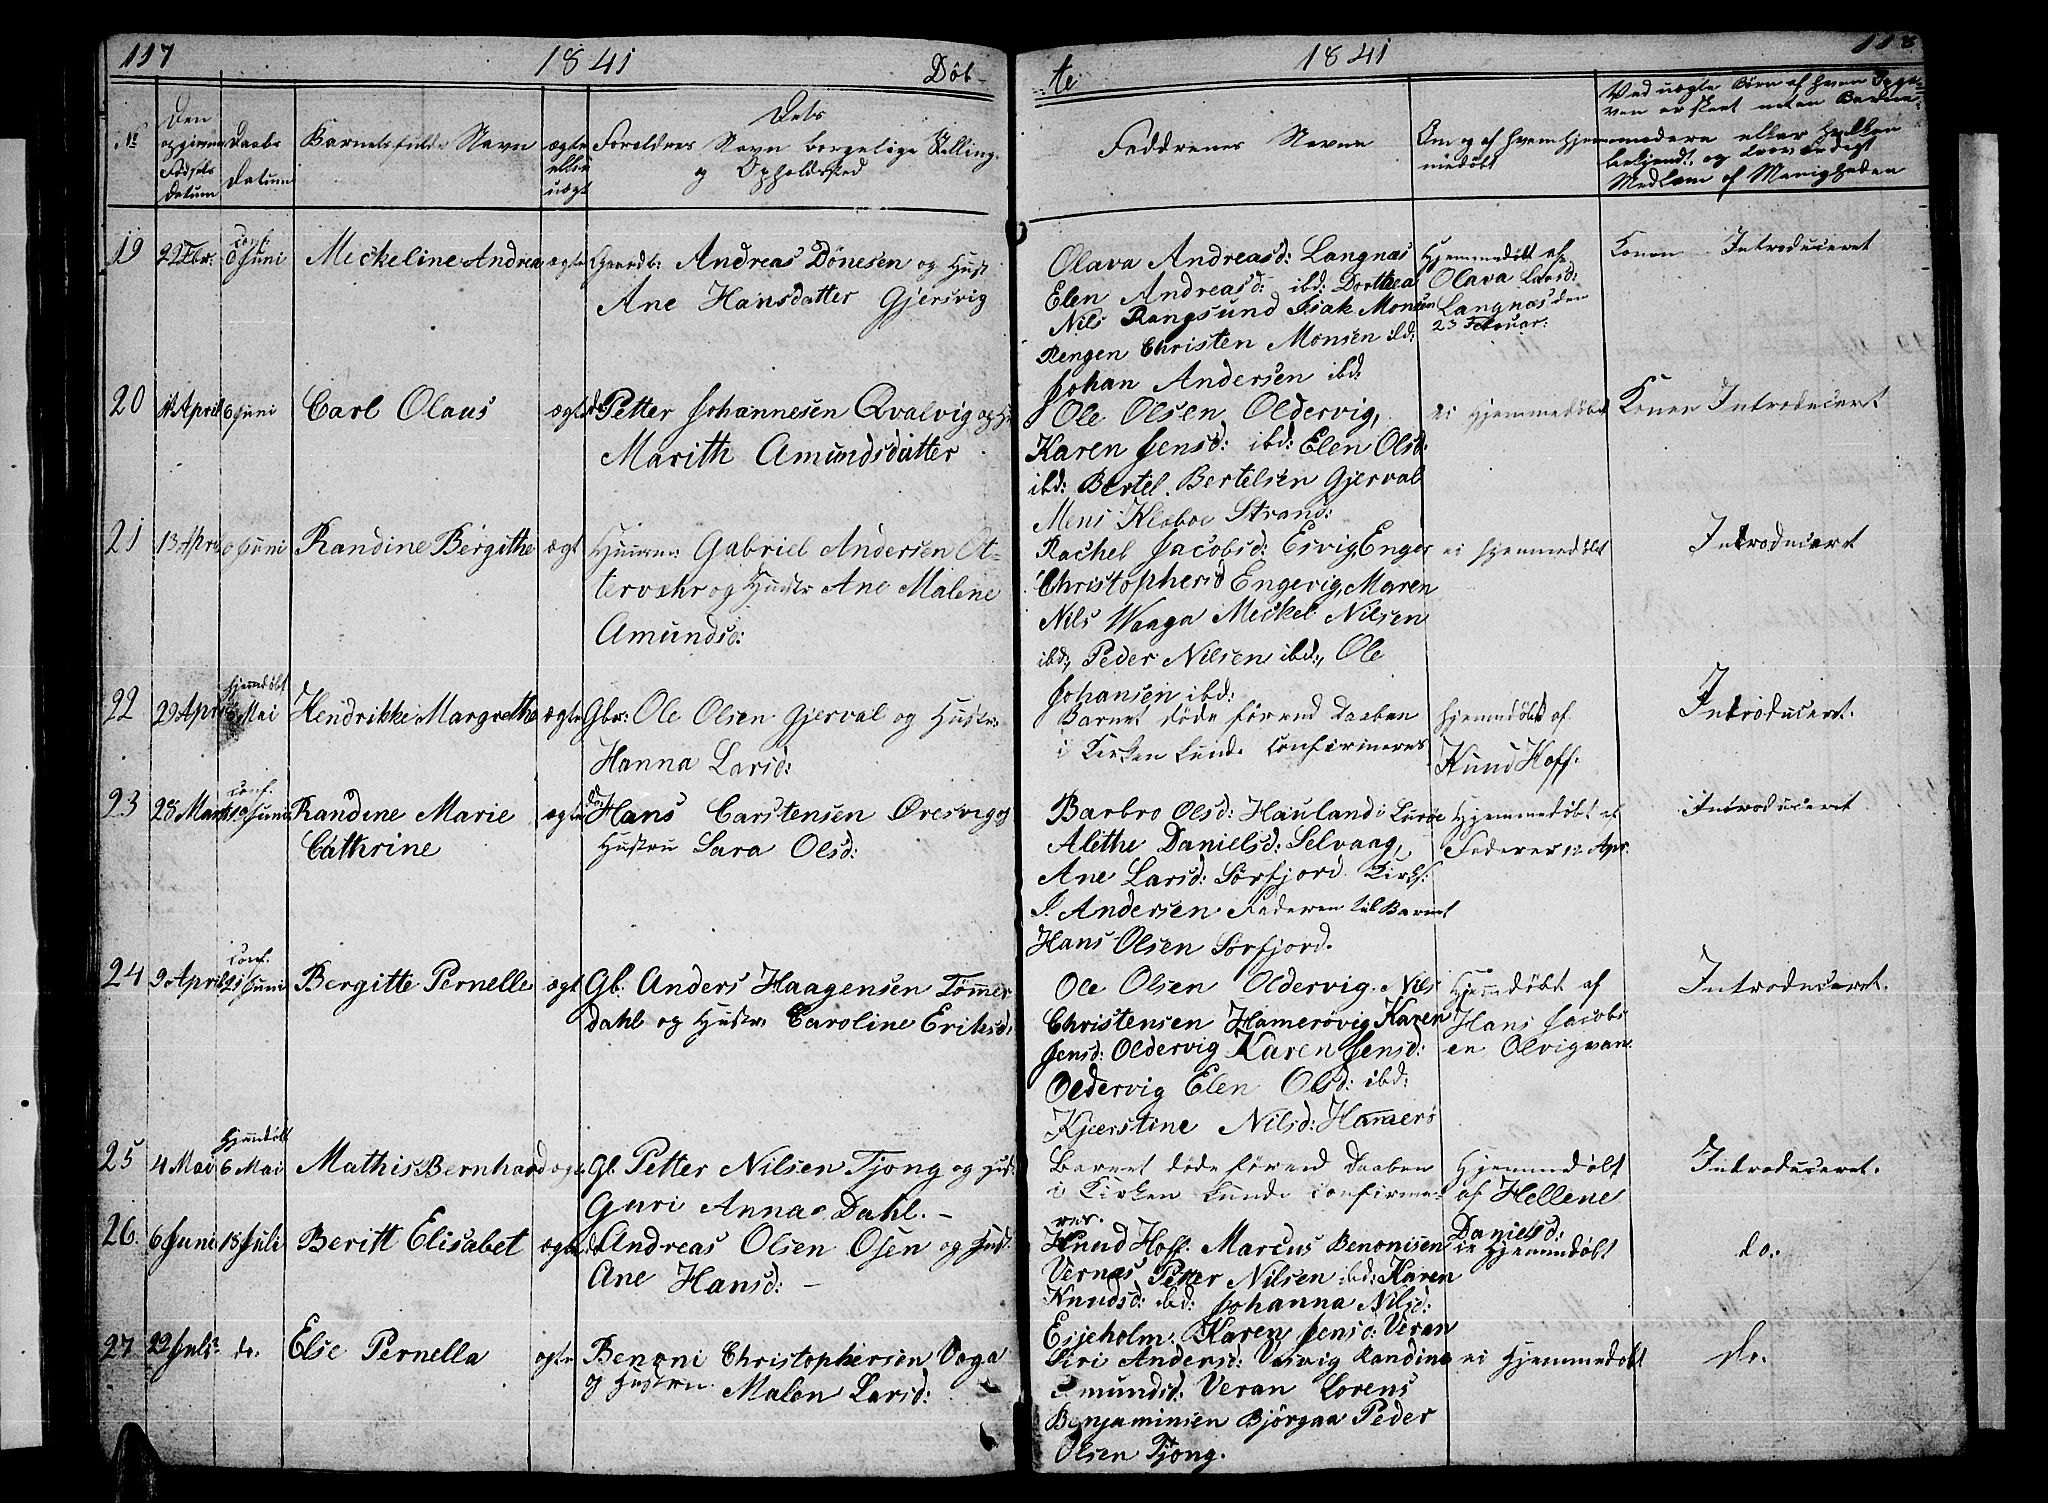 117 1841 Döb-
te 1841 118
No
Den opgivne Fødsels Datum
Daabs Datum
Barnets fulde Navn
ægte eller uægt
Dets Foreldres Navn borgelige Stilling og Opholdssted
Faddrenes Navne
Om og af hvem hjemmedøbt
19 22 Febr: conf. 6 Juni Mickeline Andrea ægte Gaardb: Andreas Dönesen og Hust
Ane Hansdatter Gjersvig
Olava Andreasd: Langnæs
Elen Andreasd: ibd: Dorthea
Nils Rangsund Isak Monsen
Rengen Christen Monsen ibd:
Johan Andersen ibd:
Hjemmedöbt af
Olava Larsd:
Langnæs den
23 Februar:
Konen Introduceret
20 April 6 Juni Carl Olaus ægte do Petter Johannesen Qvalvig og H:
Marith Amundsdatter
Ole Olsen Oldervig,
Karen Jensd: ibd: Elen Olsd:
ibd: Bertel Bertelsen Gjerval
Mens Klæboe Strand:
ei Hjemmedöbt
Konen Introduceret
21 13 Apri 6 Juni Randine Bergithe ægt Huusm: Gabriel Andersen Ot-
tervær og Hustr Ane Malene
Amundsd:
Rachel Jacobsd: Esvig, Enger
Christophersd Engevig, Maren
Nils Waaga Meckel Nilsen
ibd:, Peder Nilsen ibd:, Ole
Johansen ibd:
ei hjemmedöbt
Introduceret
22 29 Apri hjemdöbt Mai Hendrikke Margrethe ægte Gbr: Ole Olsen Gjerval og Hustr:
Hanna Larsd:
Barnet döde förend Daaben
i Kirken kunde confirmeres
hjemmdöbt af
Knud Hoff.
Introduceret.
23 28 Marts conf. Juni Randine Marie ægte do: Hans Carstensen Øresvig og
Cathrine Hustru Sara Olsd:
Barbro Olsd: Hauland i Luröe
Alethe Danielsd: Selvaag,
Ane Larsd: Sörfjord. Kirks:
I. Andersen Faderen til Barnet
Hans Olsen Sörfjord.
Hjemmedöbt af
Faderen 12 Apr.
Introduceret
24 9 April conf. 21 Juni Bergitte Pernelle ægt Gb. Anders Haagensen Tømmer
dahl og Hustr: Caroline Eriksd:
Ole Olsen Oldervig. Nils
Christensen Hamerövig Karen
Jensd: Oldervig Karen Jensd:
Oldervig Elen Olsd: ibd:
Kjerstine Nilsd: Hamerö
Hjemdöbt af
Hans Jacobs
en Olvigvan.
Introduceret.
25 4 Mai Hjemdöbt 6 Mai Mathis Bernhard ægte Gb. Petter Nilsen Tjong og Hust
Guri Anna Dahl. -
Barnet döde förend Daaben
i Kirken kunde confirme-
res.
Hjemmdöbt
af Hellene
Danielsd:
Introduceret.
26. 6 Juni 18 Juli Beritt Elisabet ægte do Andreas Olsen Osen og Hust.
Ane Hansd: -
Knud Hoff. Marcus Benonisen
Vernæs Petter Nilsen ibd: Karen
Knudsd: ibd: Johanna Nilsd:
Esjeholm. Karen Jensd: Veran
ei Hjemmdöbt
do.
27 22 Juli do. Else Pernella ægte Benoni Christophersen Vaga
og Hustru Malen Larsd:
Siri Andersd: Vasvig Randine
Amundsd: Veran Lorens
Benjaminsen Bjørgan Peder
Olsen Tjong.
ei Hjemmedöbt
do.